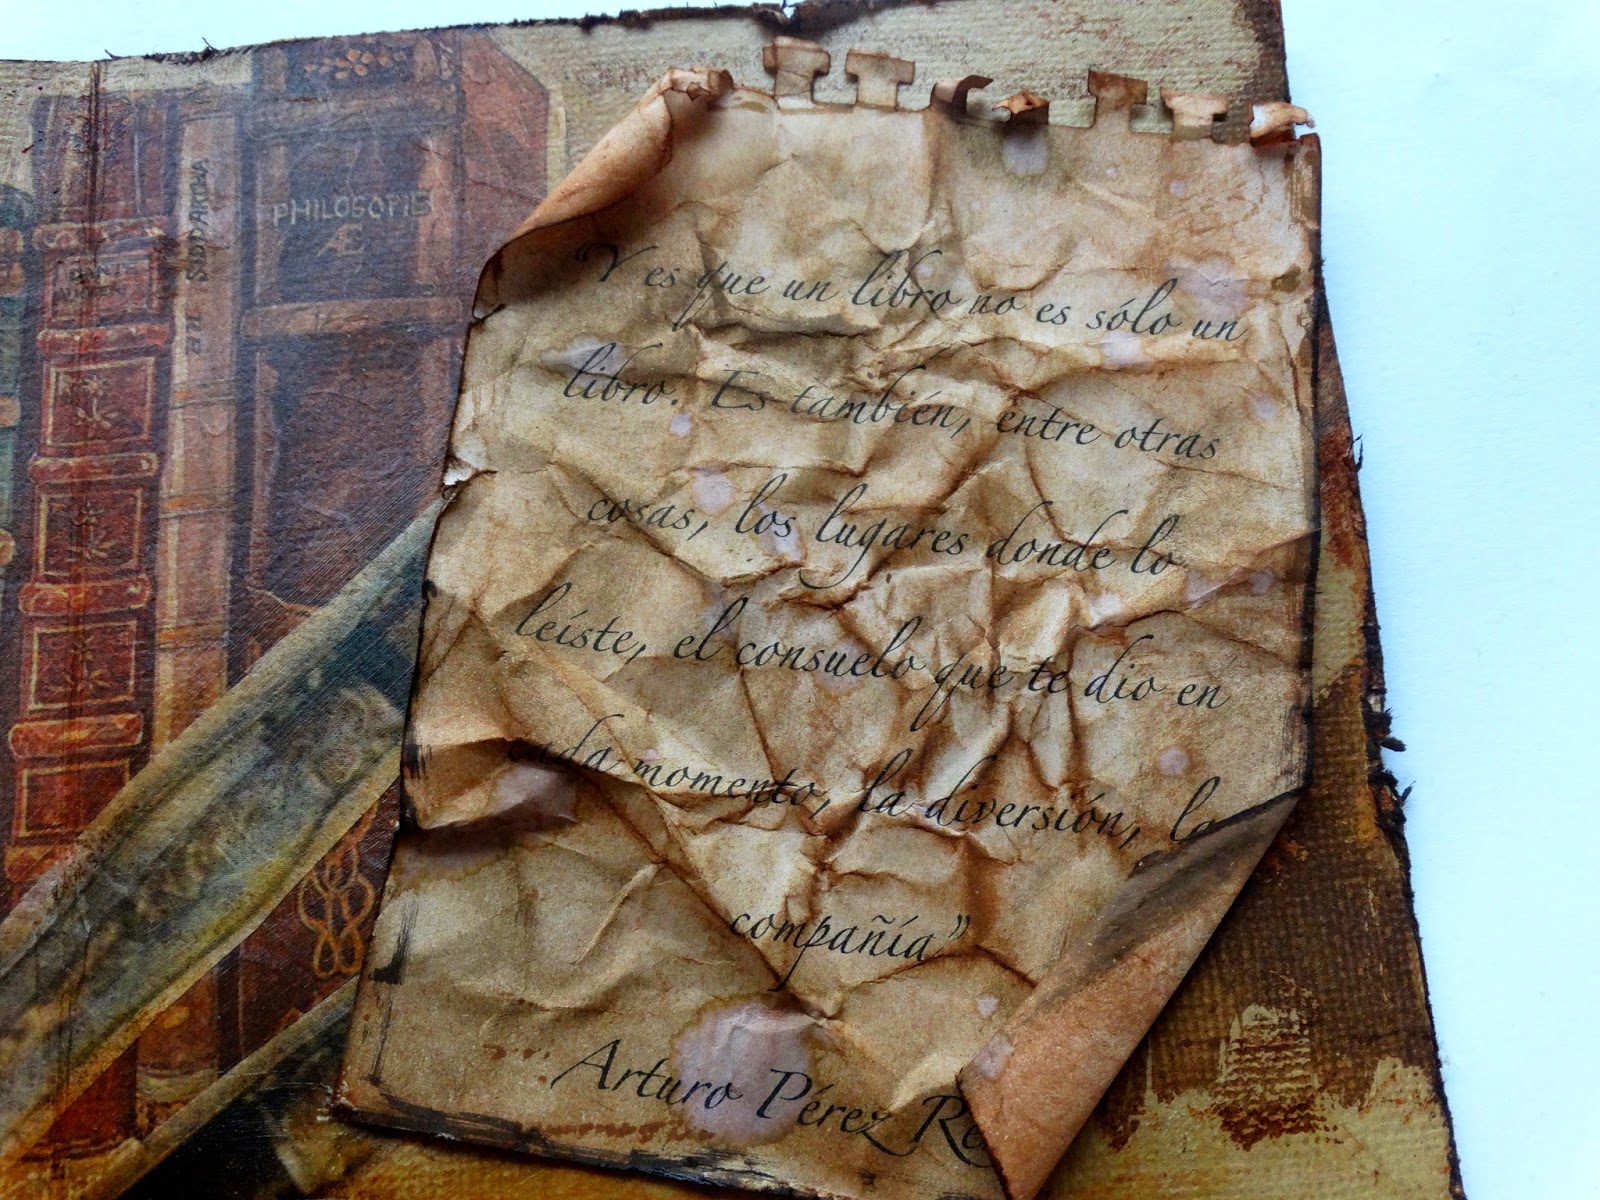 PHILOSOFIE
Æ
SIDDARTHA
"Y es que un libro no es sólo un
libro. Es también, entre otras
cosas, los lugares donde lo
leíste, el consuelo que te dio en
cada momento, la diversión, la
compañía"
Arturo Pérez Re